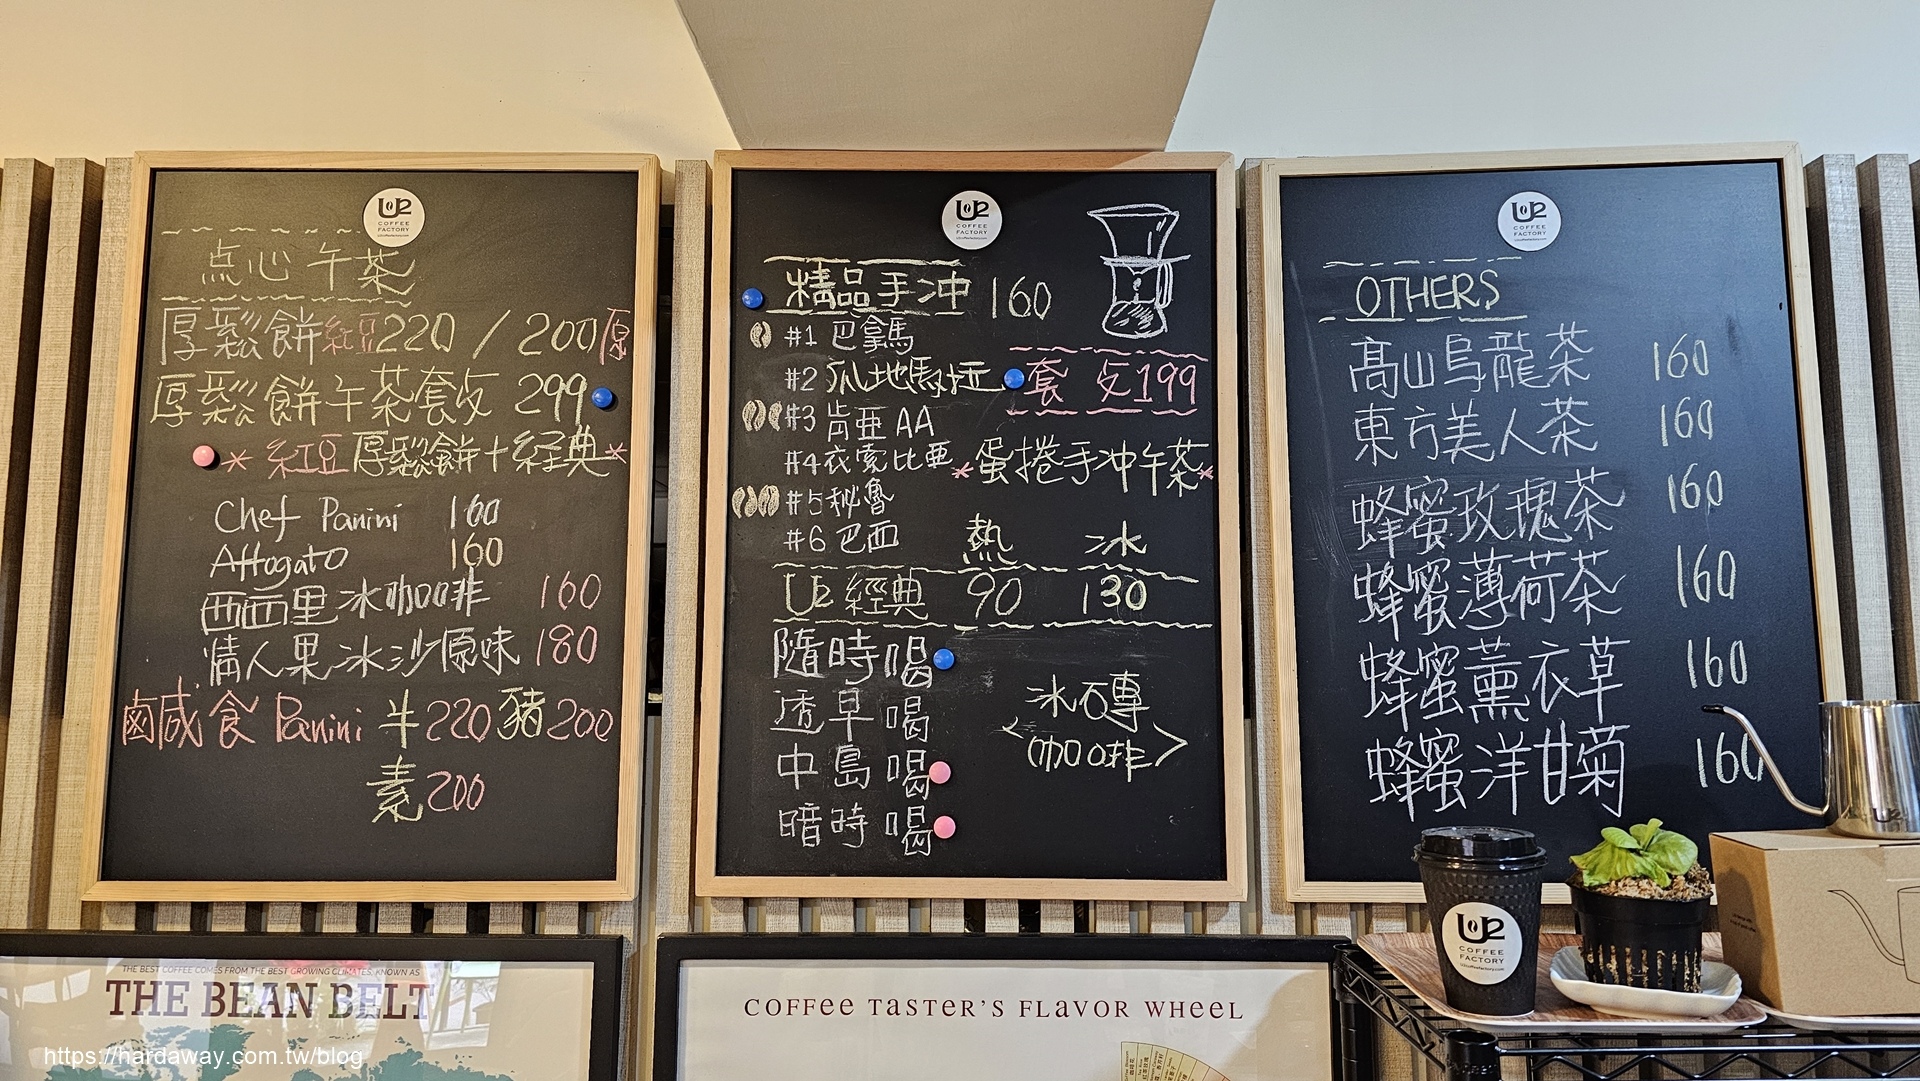 U2
COFFEE
FACTORY
点心午茶
厚鬆餅紅豆220 / 200原
厚鬆餅午茶套攵 299
* 紅豆厚鬆餅+經典*
Chef Panini 160
Affogato 160
西西里冰咖啡 160
情人果冰沙原味 180
鹵咸食 Panini 牛220豬200
素200
U2
COFFEE
FACTORY
精品手冲 160
#1 巴拿馬
#2 瓜地馬拉 套攵199
#3 肯亜 AA
#4 衣索比亜 *蛋捲手冲午茶*
#5 秘魯
#6 巴西 熱 冰
U2 經典 90 130
隨時喝
透早喝
中島喝
暗時喝
冰磚
<咖啡>
U2
COFFEE
FACTORY
OTHERS
高山烏龍茶 160
東方美人茶 160
蜂蜜玫瑰茶 160
蜂蜜薄荷茶 160
蜂蜜薰衣草 160
蜂蜜洋甘菊 160
U2
COFFEE
FACTORY
THE BEST COFFEE COMES FROM THE BEST GROWING CLIMATES, KNOWN AS
THE BEAN BELT
COFFEE TASTER'S FLAVOR WHEEL
https://hardaway.com.tw/blog